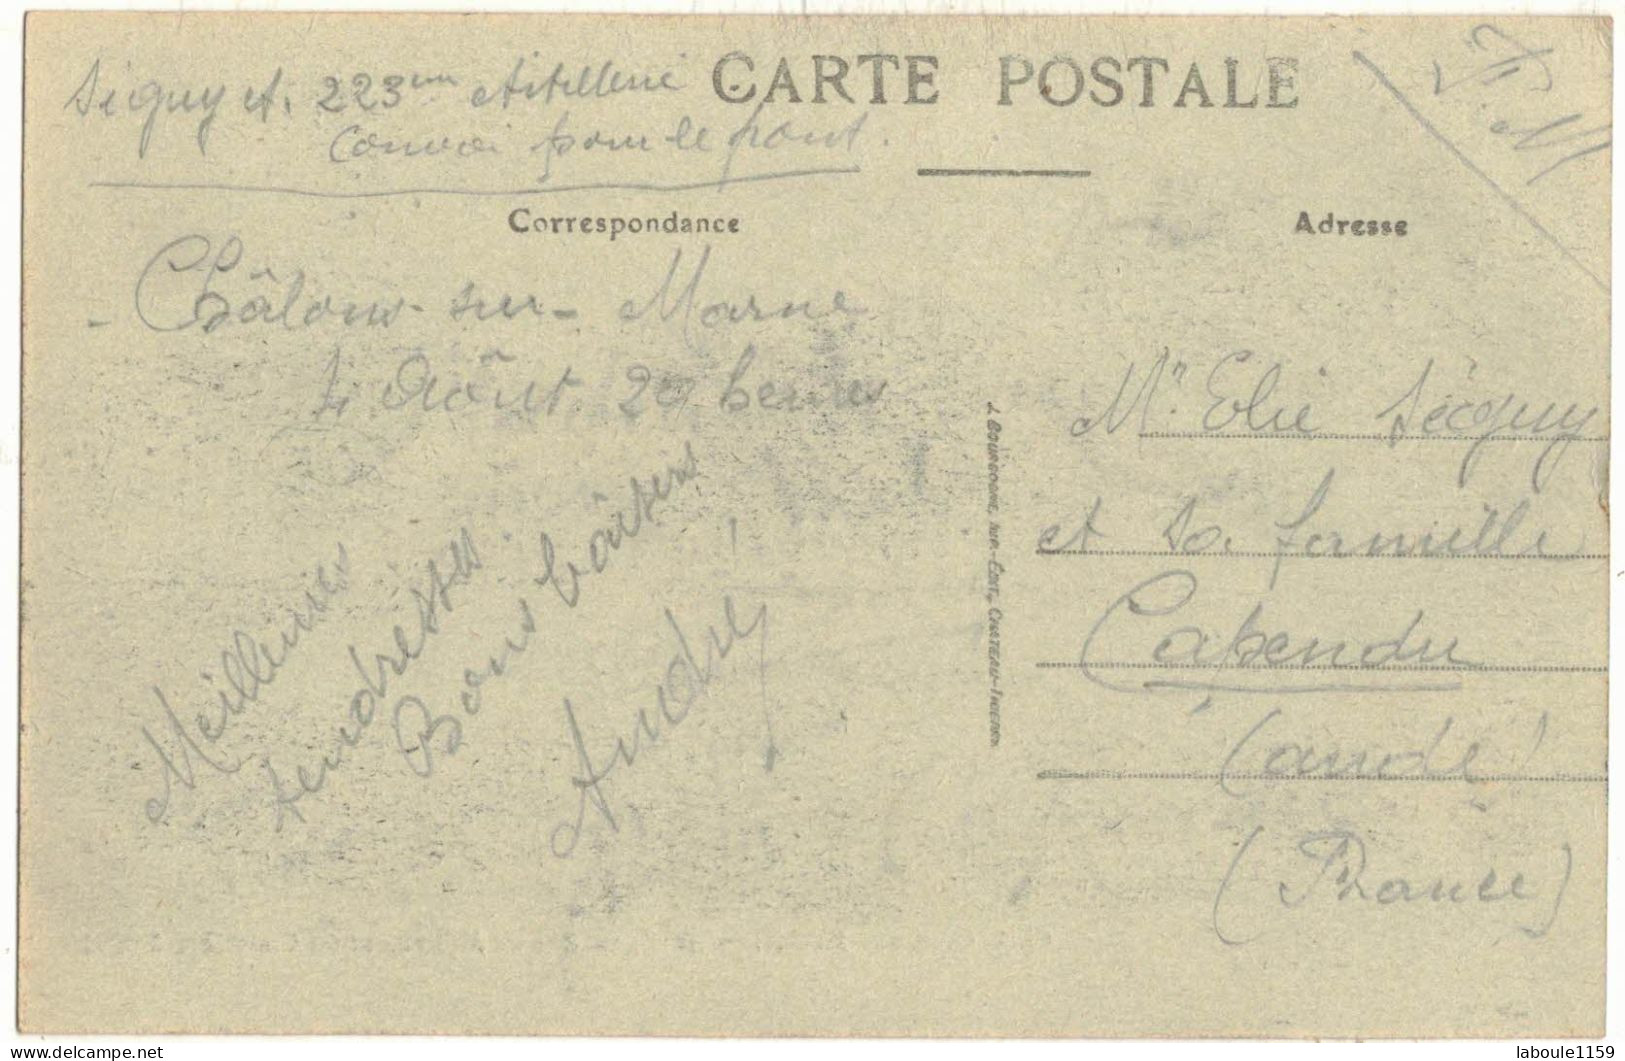 Séguy A. 223eme Artillerie
Convoi pour le front.
CARTE POSTALE
F. M
Correspondance
Adresse
- Châlons-sur-Marne
4 Août 20 heures
Meilleures
tendresses.
Bons baisers
André
J. BOURGOGNE, IMP.-ÉDIT., CHATEAU-THIERRY
Mr Elie Séguy
et sa famille
Capendu
(aude)
(France)
laboule1159